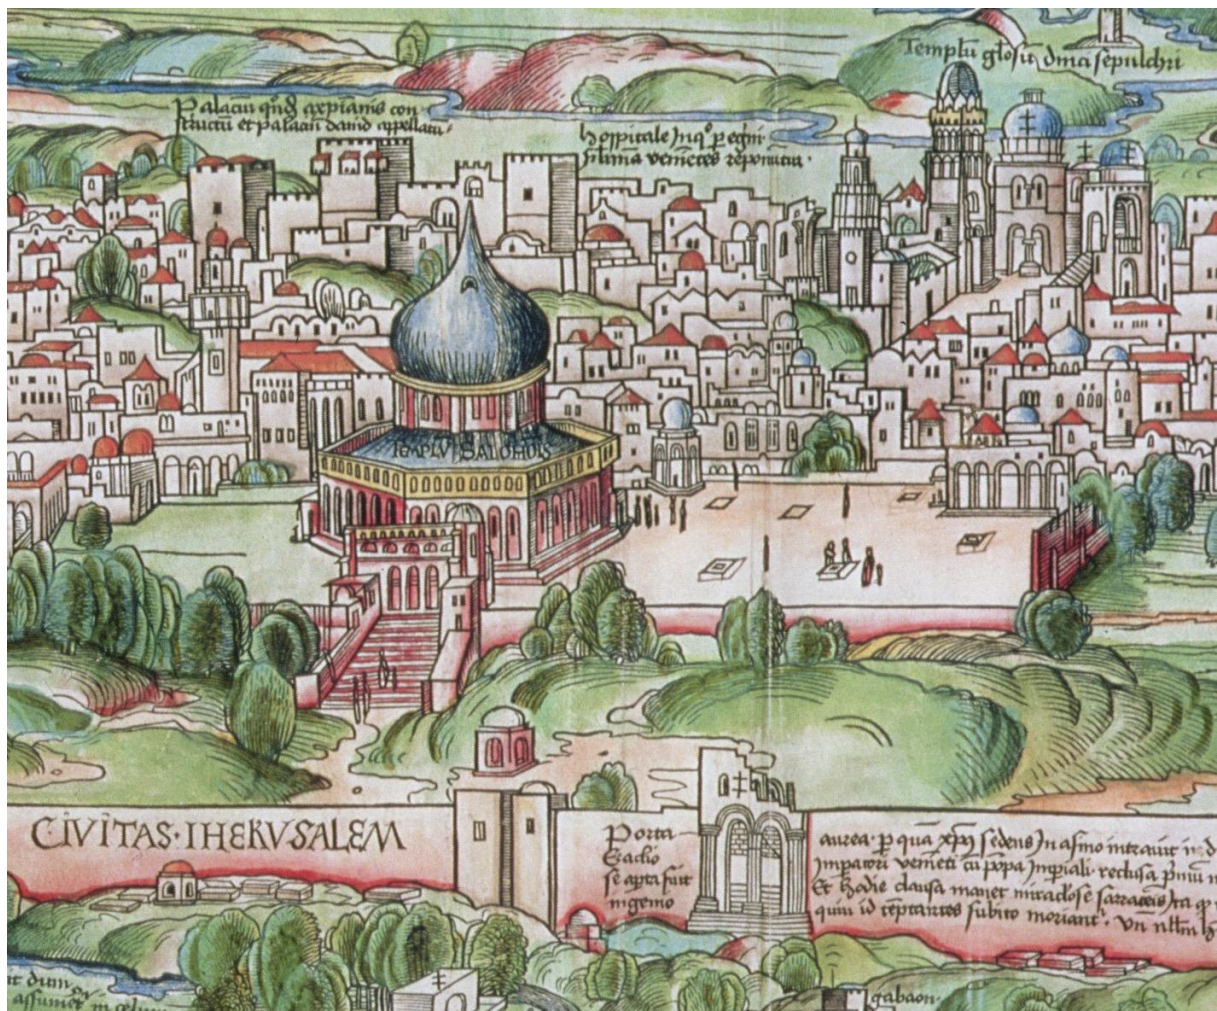 Templu glosu dnici sepulchri
Palaciu qnd xpianis con
structu et palaciu dauid appellatu
hospitale Inq peregrini
venietes reponutur
TEMPLV SALOMOIS
CIVITAS·IHERVSALEM
Porta
Eraclio
se apta fuit
ingenio
aurea· p qua xpus sedens In asino intrauit
Impatori venieti cu popa Impiali· reclusa
Et hodie clausa manet miraclose sarraceis Ita
id teptantes subito moriantr·
it dum
assumet in celum
gabaon·